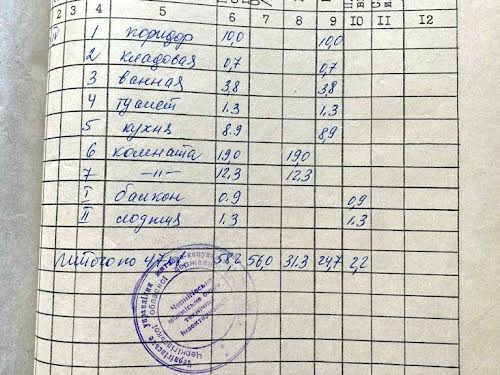 2 3 4 5 6 7 8 9 10 11 12
1 коридор 10,0 10,0
2 кладовая 0,7 0,7
3 ванная 3,8 3,8
4 туалет 1.3 1,3
5 кухня 8.9 8,9
6 комната 19,0 19,0
7 —"— 12,3 12,3
I балкон 0.9 0,9
II лоджия 1.3 1.3
Итого по 58,2 56,0 31.3 24,7 2,2